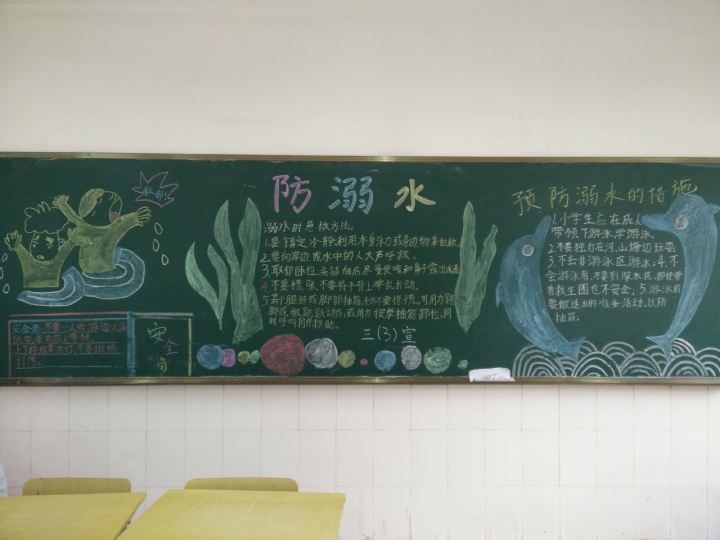 救命!
防溺水
溺水时急救方法:
1.要镇定冷静,利用本身浮力或身边物来自救
2.要向岸边或水中的人大声呼救。
3.取仰卧位,头部向后,尽量使嘴和鼻子露出水面
4.不要慌张,不要将手臂上举乱扑动.
5.若小腿部或脚部抽筋,千万不要惊慌,可用力蹬
脚或做跳跃动作,或用力按摩抽筋部位,同
时呼叫同伴救助.
三(3)宣
预防溺水的措施
1.小学生应在成人
带领下游泳,学游泳.
2.不要独自在河,山塘边玩耍.
3.不去非游泳区游泳.4.不
会游泳者,不要到深水区,即使带
着救生圈也不安全.5.游泳前
要做适当的准备活动,以防
抽筋.
安全角
不要一人
上下楼梯
安全角